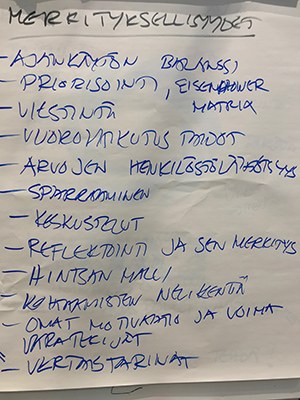 MERKITYKSELLISYYDET
- AJANKÄYTÖN BALANSSI
- PRIORISOINTI, EISENHOWER
MATRIX
- VIESTINTÄ
- VUOROVAIKUTUSTAIDOT
- ARVOJEN HENKILÖSTÖLÄHTÖISYYS
- SPARRAAMINEN
- KESKUSTELUT
- REFLEKTOINTI JA SEN MERKITYS
- HINTSAN MALLI
- KOHTAAMISTEN NELIKENTTÄ
- OMAT MOTIVAATIO JA VOIMA
VARATEKIJÄT
- VERTAISTARINAT